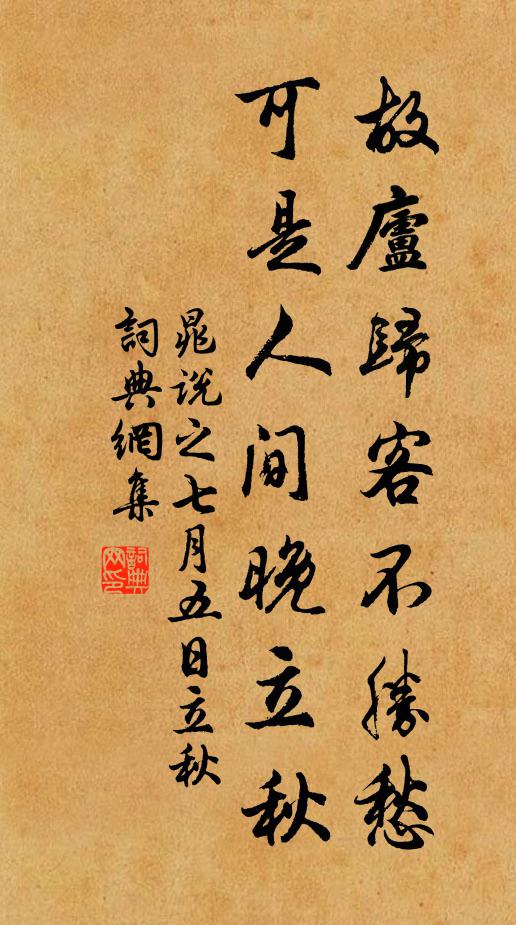 故廬歸客不勝愁
可是人间晚立秋
晁说之七月五日立秋
詞典網集
詞典网印